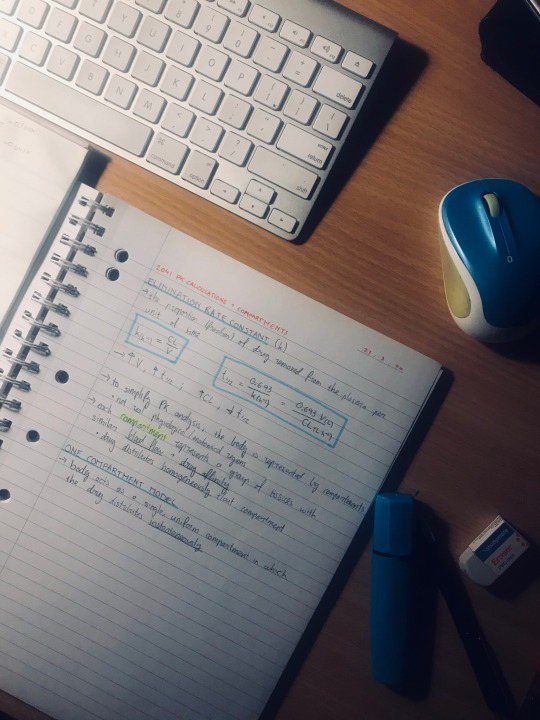 PK CALCULATIONS + COMPARTMENTS
ELIMINATION RATE CONSTANT (k)
→ the proportion (fraction) of drug removed from the plasma per
unit of time
k(h⁻¹) = CL/V
t1/2 = 0.693/k(h⁻¹) = 0.693·V(L)/CL(L·h⁻¹)
→ ↑V, ↑t1/2 ; ↑CL, ↓t1/2
→ to simplify PK analysis, the body is represented by compartments
• not real physiological/anatomical regions
→ each compartment represents a group of tissues with
similar blood flow + drug affinity
• drug distributes homogeneously that compartment
ONE COMPARTMENT MODEL
→ body acts as a single, uniform compartment in which
the drug distributes instantaneously
delete
enter
return
shift
command
option
Eraser
Q
T
Y
U
I
O
P
G
H
J
K
L
C
V
B
N
M